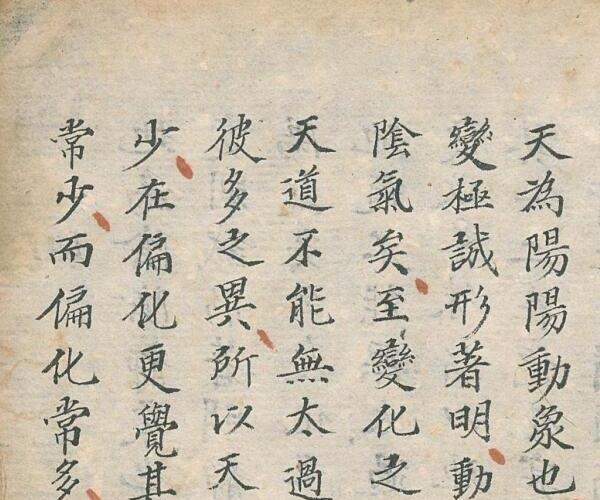 天為陽陽動象也
變極誠形著明動
陰氣矣至變化之
天道不能無太過
彼多之異所以天
少在偏化更覺其
常少而偏化常多